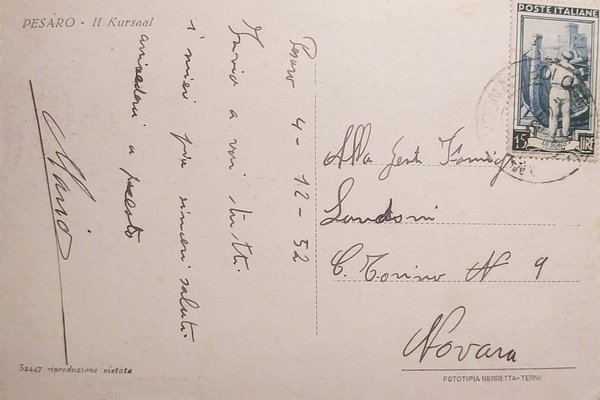 PESARO - Il Kursaal
Pesaro 4-12-52
Invio a voi tutti
i miei più sinceri saluti.
arrivederci a presto
Mario
POSTE ITALIANE
15 LIRE
Alla Gent Famig
Landoni
C. Torino N 9
Novara
32447 riproduzione vietata
FOTOTIPIA BERRETTA-TERNI